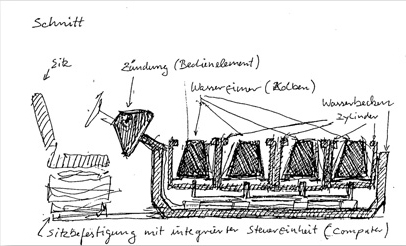 Schnitt
Sitz
Zündung (Bedienelement)
Wassereimer (Kolben)
Wasserbecken
Zylinder
(Sitzbefestigung mit integrierter Steuereinheit (Computer)